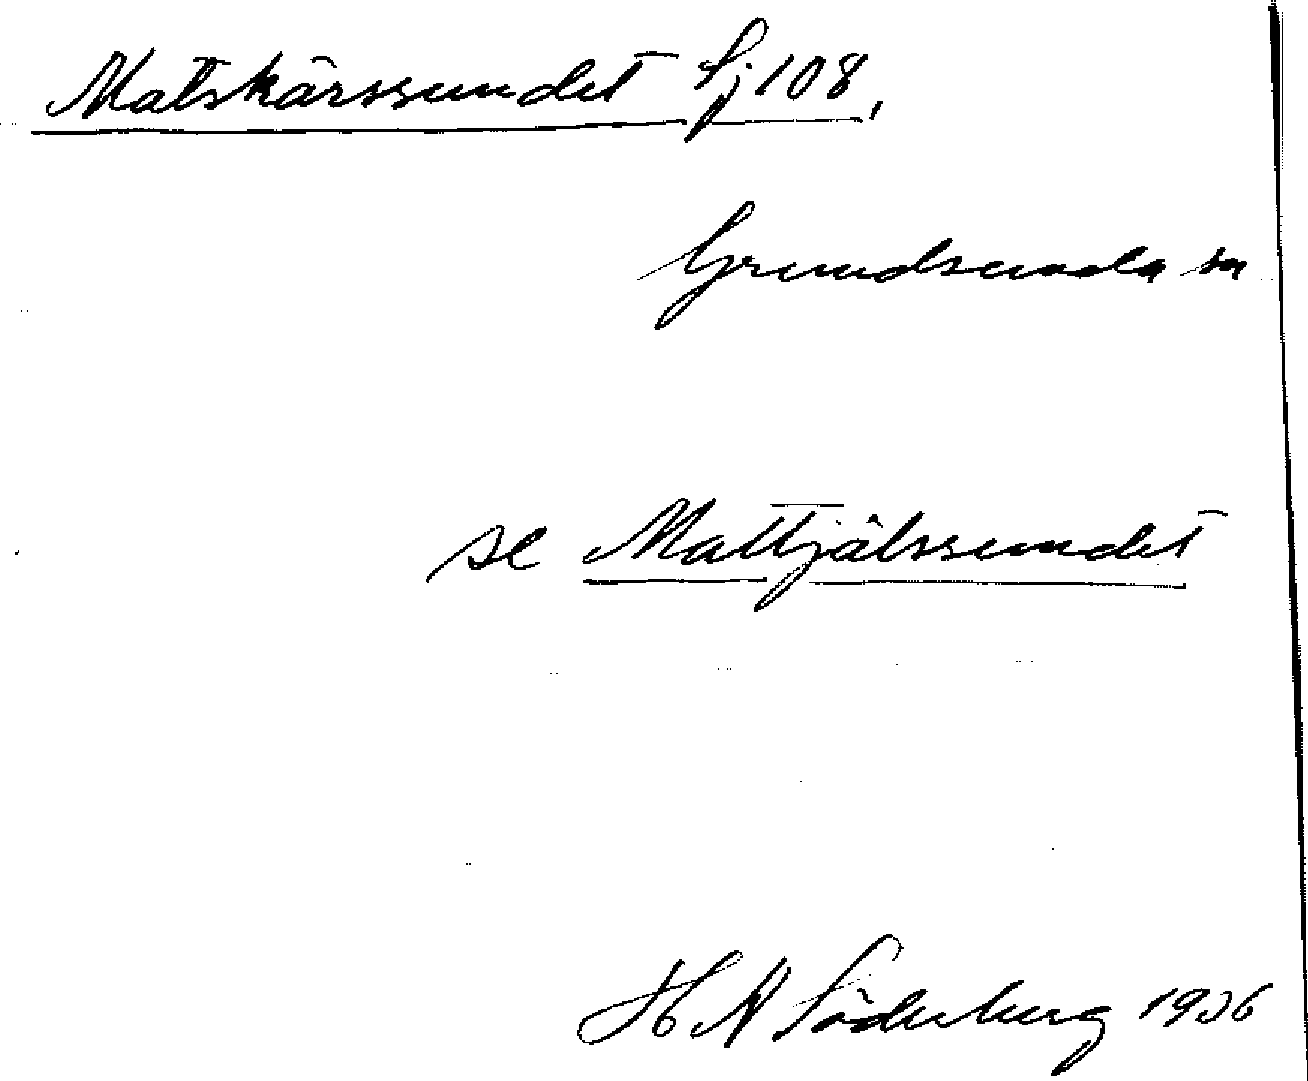 Matskärssundet Sj 108,
Grundsunda sn
se Mattjälssundet
H A Söderberg 1936